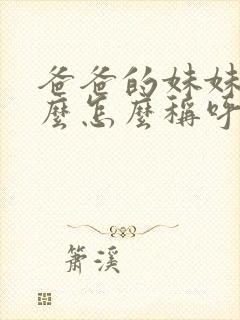 爸爸的妹妹
麼怎麼稱呼
簫溪